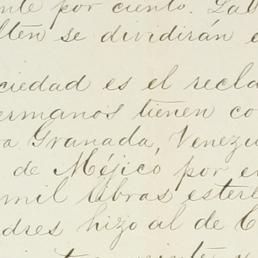 nte por ciento. La
lten se dividirán e
ciedad es el recla
ermanos tienen co
a Granada, Venezu
de Méjico por e
mil libras ester
dres hizo al de C